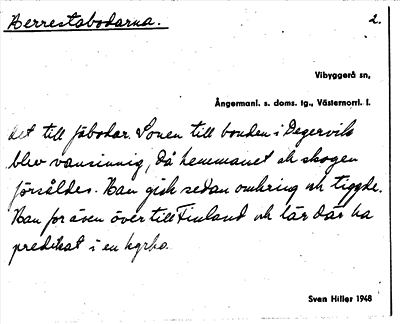 Herrestabodarna. 2.
Vibyggerå sn,
Ångermanl. s. doms. tg., Västernorrl. l.
det till fäbodar. Sonen till bonden i Degervik
blev vansinnig, då hemmanet och skogen
försåldes. Han gick sedan omkring och tiggde.
Han for även över till Finland och lär där ha
predikat i en kyrka.
Sven Hiller 1948